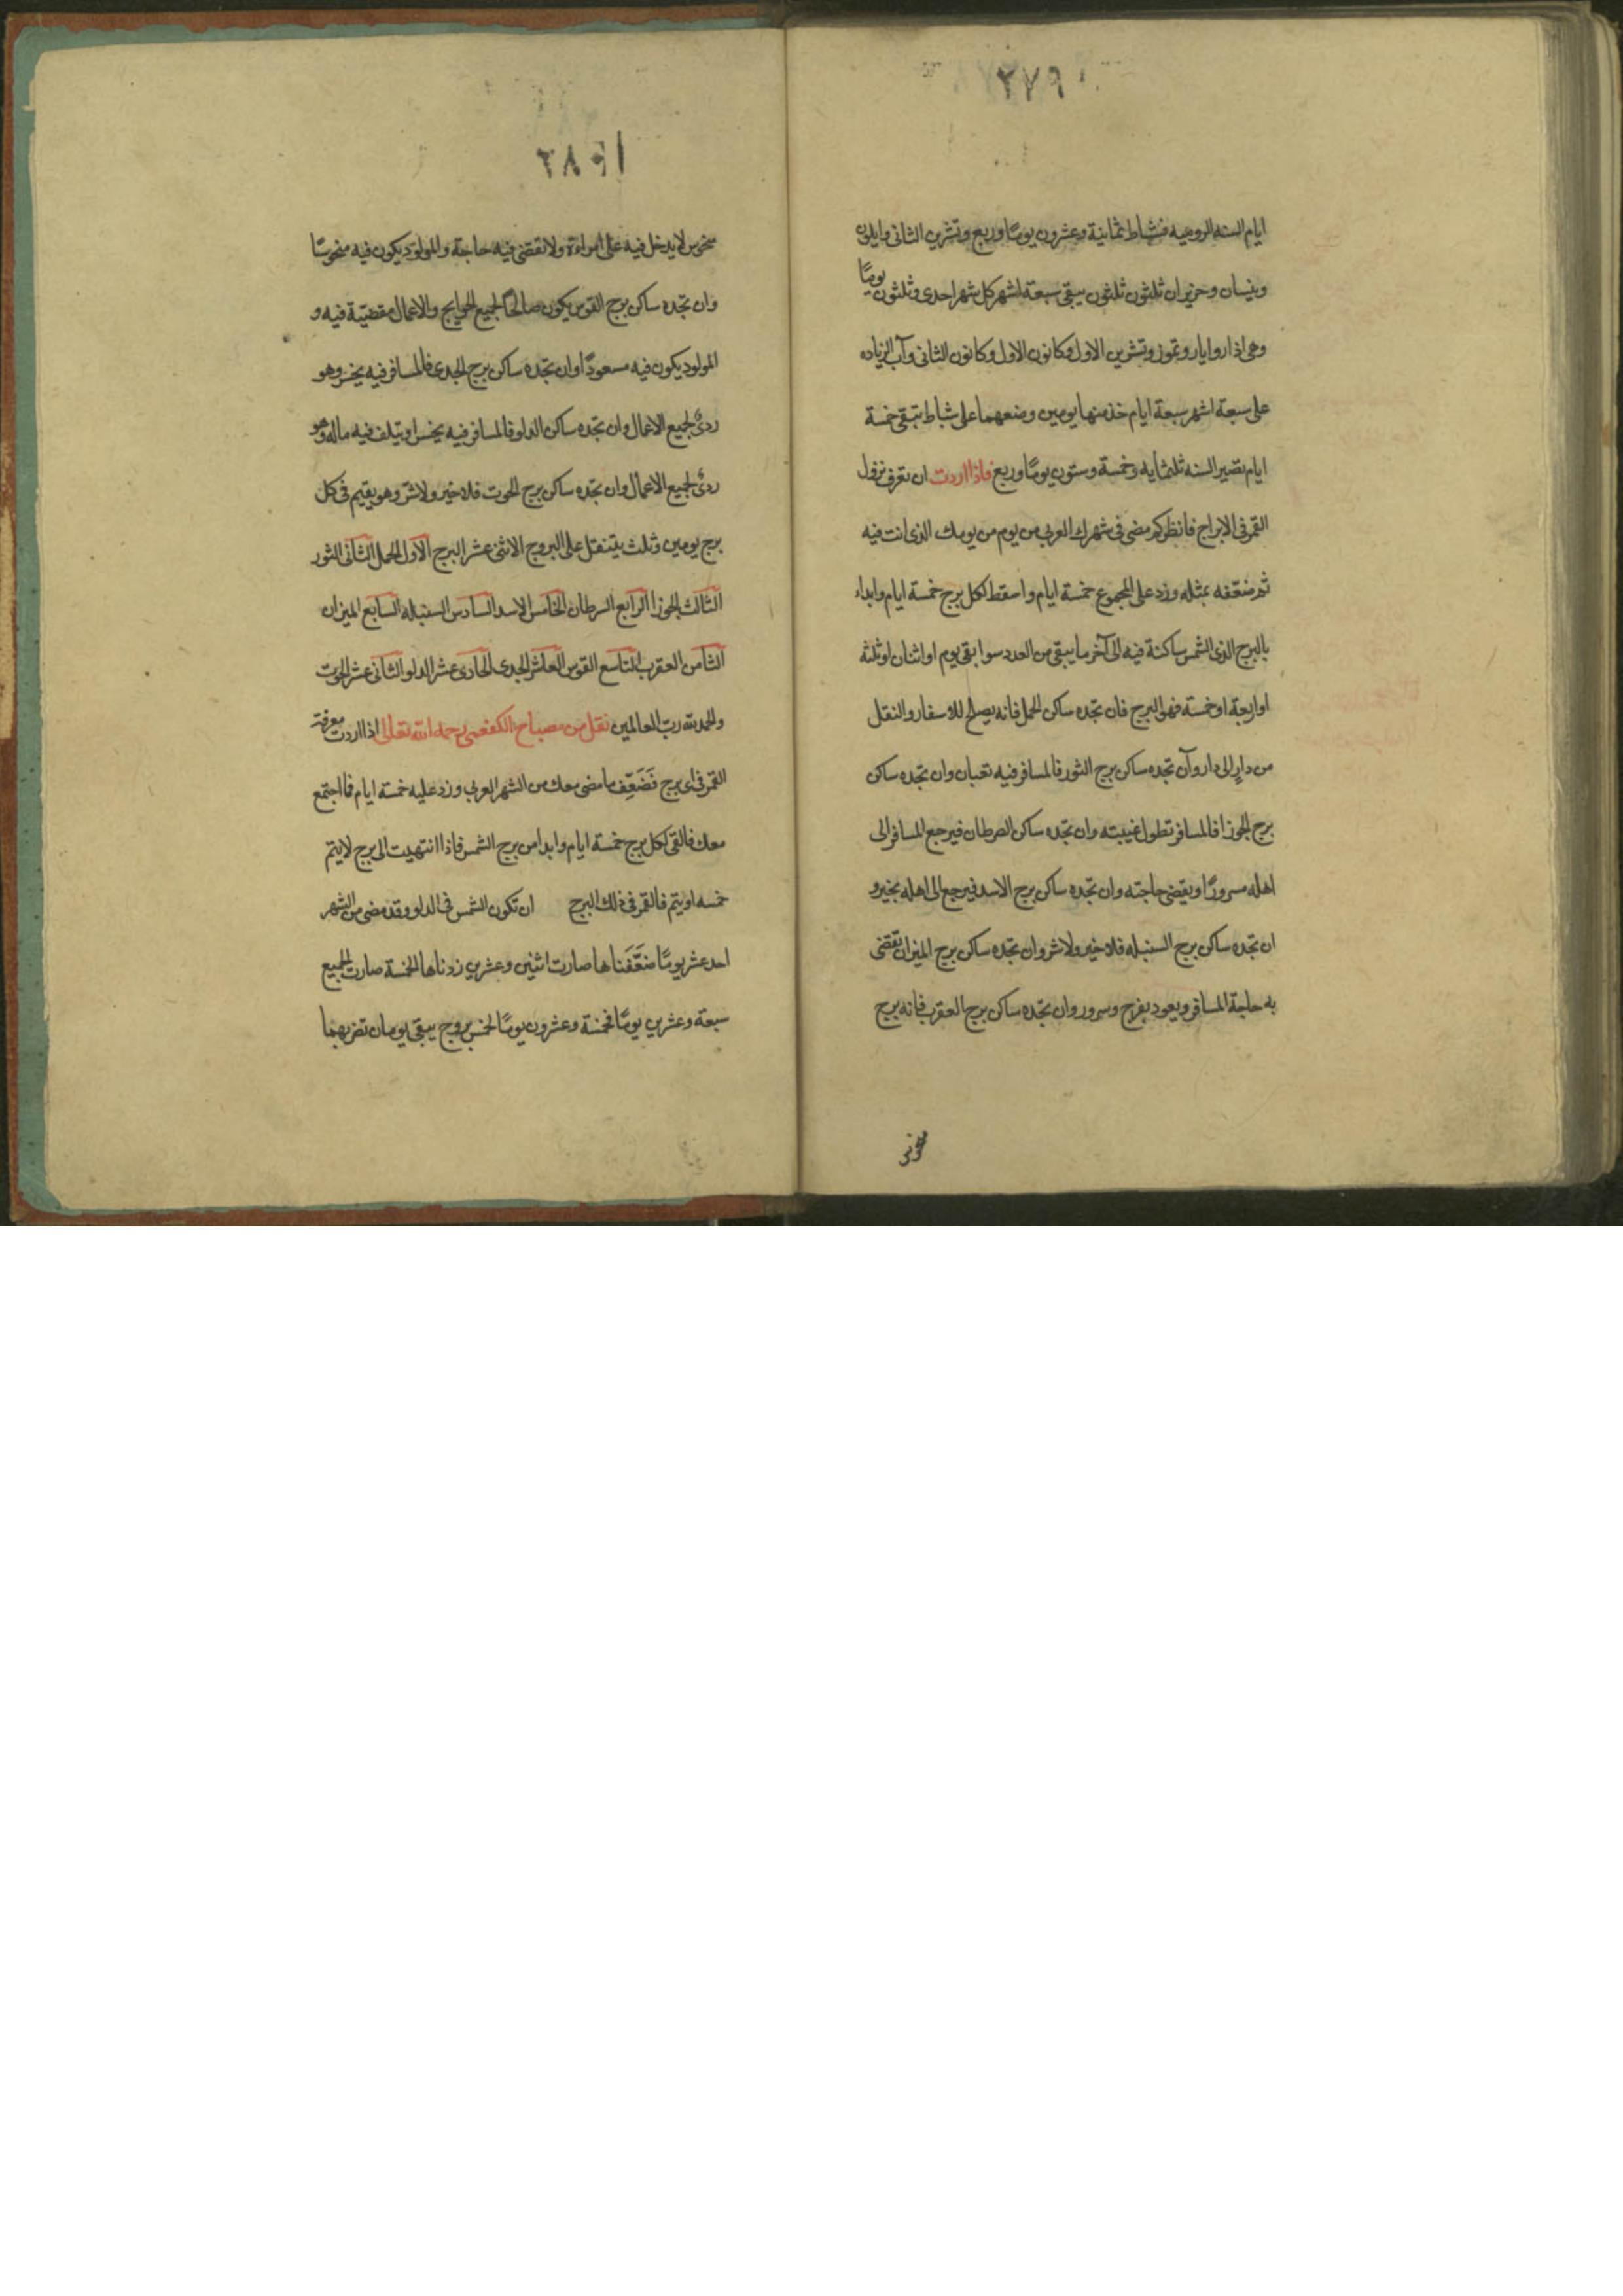 ٢٧٩
ايام السنه الروميه فشباط ثمانية وعشرون يومًا وربع وتشرين الثانى وايلون
ونيسان وحزيران ثلثون ثلثون يبقى سبعة اشهر كل شهر احدى وثلثون يومًا
وهى اذار وايار وتموز وتشرين الاول وكانون الاول وكانون الثانى وآب الزياده
على سبعة اشهر سبعة ايام خذ منها يومين وضعهما على شباط تبقى خمسة
ايام تصير السنه ثلثمايه وخمسة وستون يومًا وربع فاذا اردت ان تعرف نزول
القمر فى الابراج فانظر كم مضى فى شهرك العربى من يوم من يومك الذى انت فيه
ثم ضعّفه بمثله وزد على المجموع خمسة ايام واسقط لكل برج خمسة ايام وابداء
بالبرج الذى الشمس ساكنة فيه الى آخر ما يبقى من العدد سوا بقى يوم او اثنان او ثلثه
او اربعة او خمسة فهو البرج فان تجده ساكن الحمل فانه يصلح للاسفار والنقل
من دارٍ الى دار وآن تجده ساكن برج الثور فالمسافر فيه تعبان وان تجده ساكن
برج الجوزا فالمسافر تطول غيبته وان تجده ساكن الصرطان فيرجع المسافر الى
اهله مسرورًا ويقضى حاجته وان تجده ساكن برج الاسد فيرجع الى اهله بخير و
ان تجده ساكن برج السنبله فلا خير ولا شر وان تجده ساكن برج الميزان تقضى
به حاجة المسافر ويعود بفرح وسرور وان تجده ساكن برج العقرب فانه برج
منحوس
٢٨
منحوس لا يدخل فيه على امراءة ولا تقضى فيه حاجة والمولود يكون فيه منحوسًا
وان تجده ساكن برج القوس يكون صالحًا لجميع الحوايج والاعمال مقضيّة فيه و
المولود يكون فيه مسعودًا وان تجده ساكن برج الجدى فالمسافر فيه يخسر وهو
ردئ لجميع الاعمال وان تجده ساكن الدلو فالمسافر فيه يخسر او يتلف فيه ماله وهو
ردئ لجميع الاعمال وان تجده ساكن برج الحوت فلا خير ولا شر وهو يقيم فى كل
برج يومين وثلث يتنقل على البروج الاثنى عشر البرج الاول الحمل الثانى الثور
الثالث الجوزا الرابع السرطان الخامس الاسد السادس السنبله السابع الميزان
الثامن العقرب التاسع القوس العاشر الجدى الحادى عشر الدلو الثانى عشر الحوت
والحمد لله رب العالمين نقل من مصباح الكفعمى رحمه الله تعالى اذا اردت معرفة
القمر فى اى برج فَضَعِّف ما مضى معك من الشهر العربى وزد عليه خمسة ايام فما اجتمع
معك فالقى لكل برج خمسة ايام وابدا من برج الشمس فاذا انتهيت الى برج لا يتم
خمسه او يتم فالقمر فى ذلك البرج ان تكون الشمس فى الدلو وقد مضى من الشهر
احد عشر يومًا ضَعَّفناها صارت اثنين وعشرين زدناها الخمسة صارت الجميع
سبعة وعشرين يومًا فخمسة وعشرون يومًا لخمس بروج يبقى يومان تضر بهما